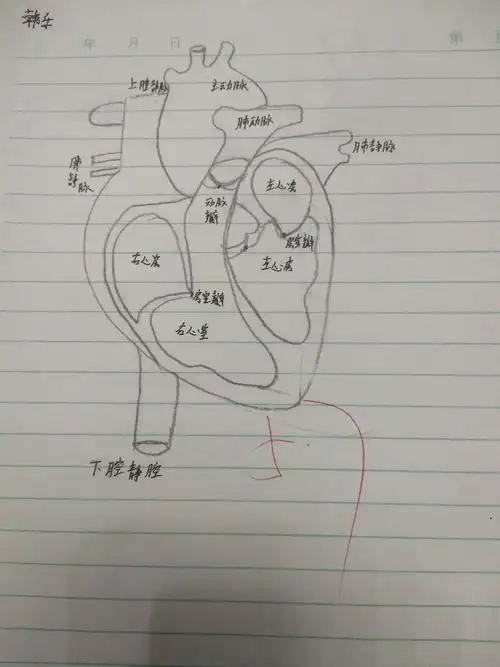 年 月 日
上腔静脉
主动脉
肺动脉
肺静脉
肺
静
脉
动脉
瓣
左心房
房室瓣
左心房
右心房
房室瓣
右心室
下腔静腔